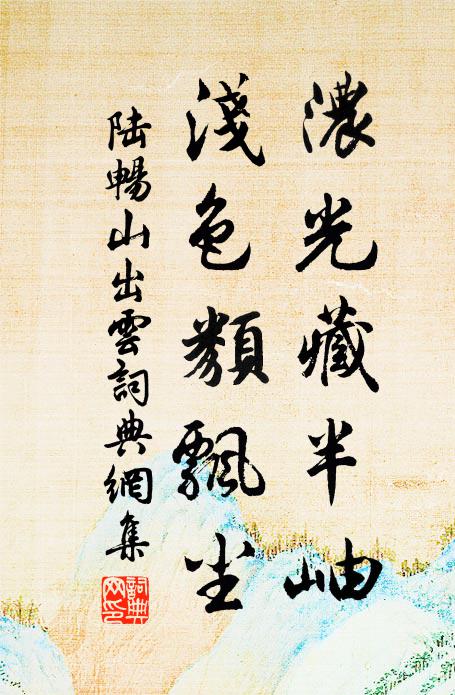 濃光藏半岫
淺色類飄尘
陆暢山出雲詞典網集
詞典